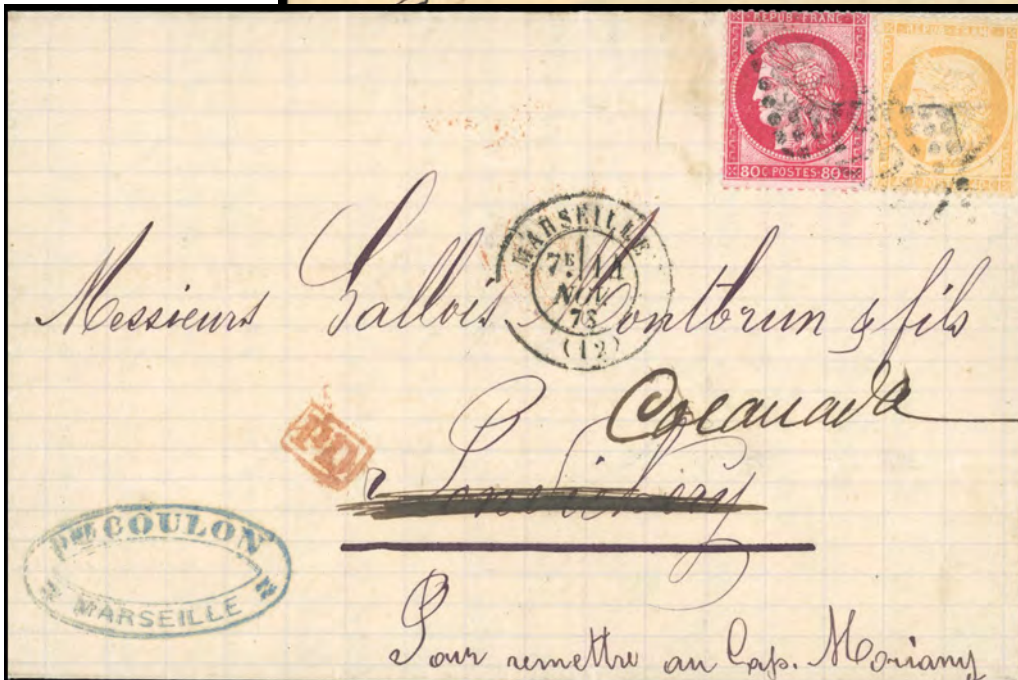 REPUB·FRANC
REPUB·FRANC
80C POSTES 80
MARSEILLE
7E 11
NOV
73
(12)
Messieurs Gallois Montbrun & fils
Cocanada
PD
Pondichéry
PRE COULON
MARSEILLE
Pour remettre au Cap. Moriany